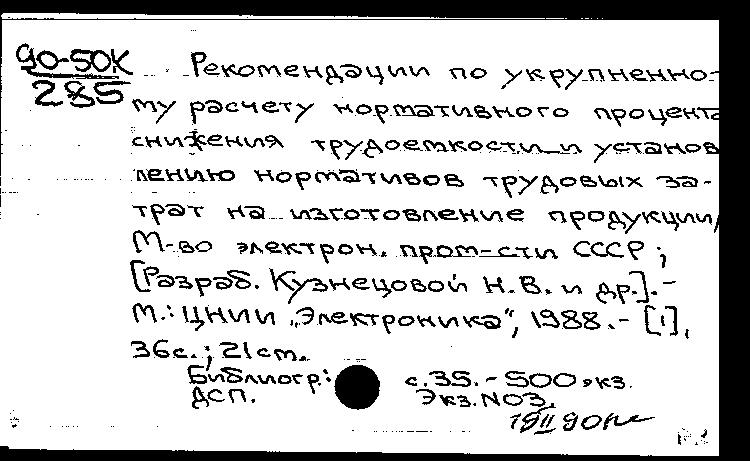 90-50К
285
Рекомендации по укрупненно-
му расчету нормативного процента
снижения трудоемкости и установ
лению нормативов трудовых за-
трат на изготовление продукции/
М-во электрон. пром-сти СССР;
[Разраб. Кузнецовой Н.В. и др.].-
М.: ЦНИИ „Электроника", 1988.- [1],
36с.; 21ст.
Библиогр.: с.35. - 500 экз.
ДСП. Экз. N03.